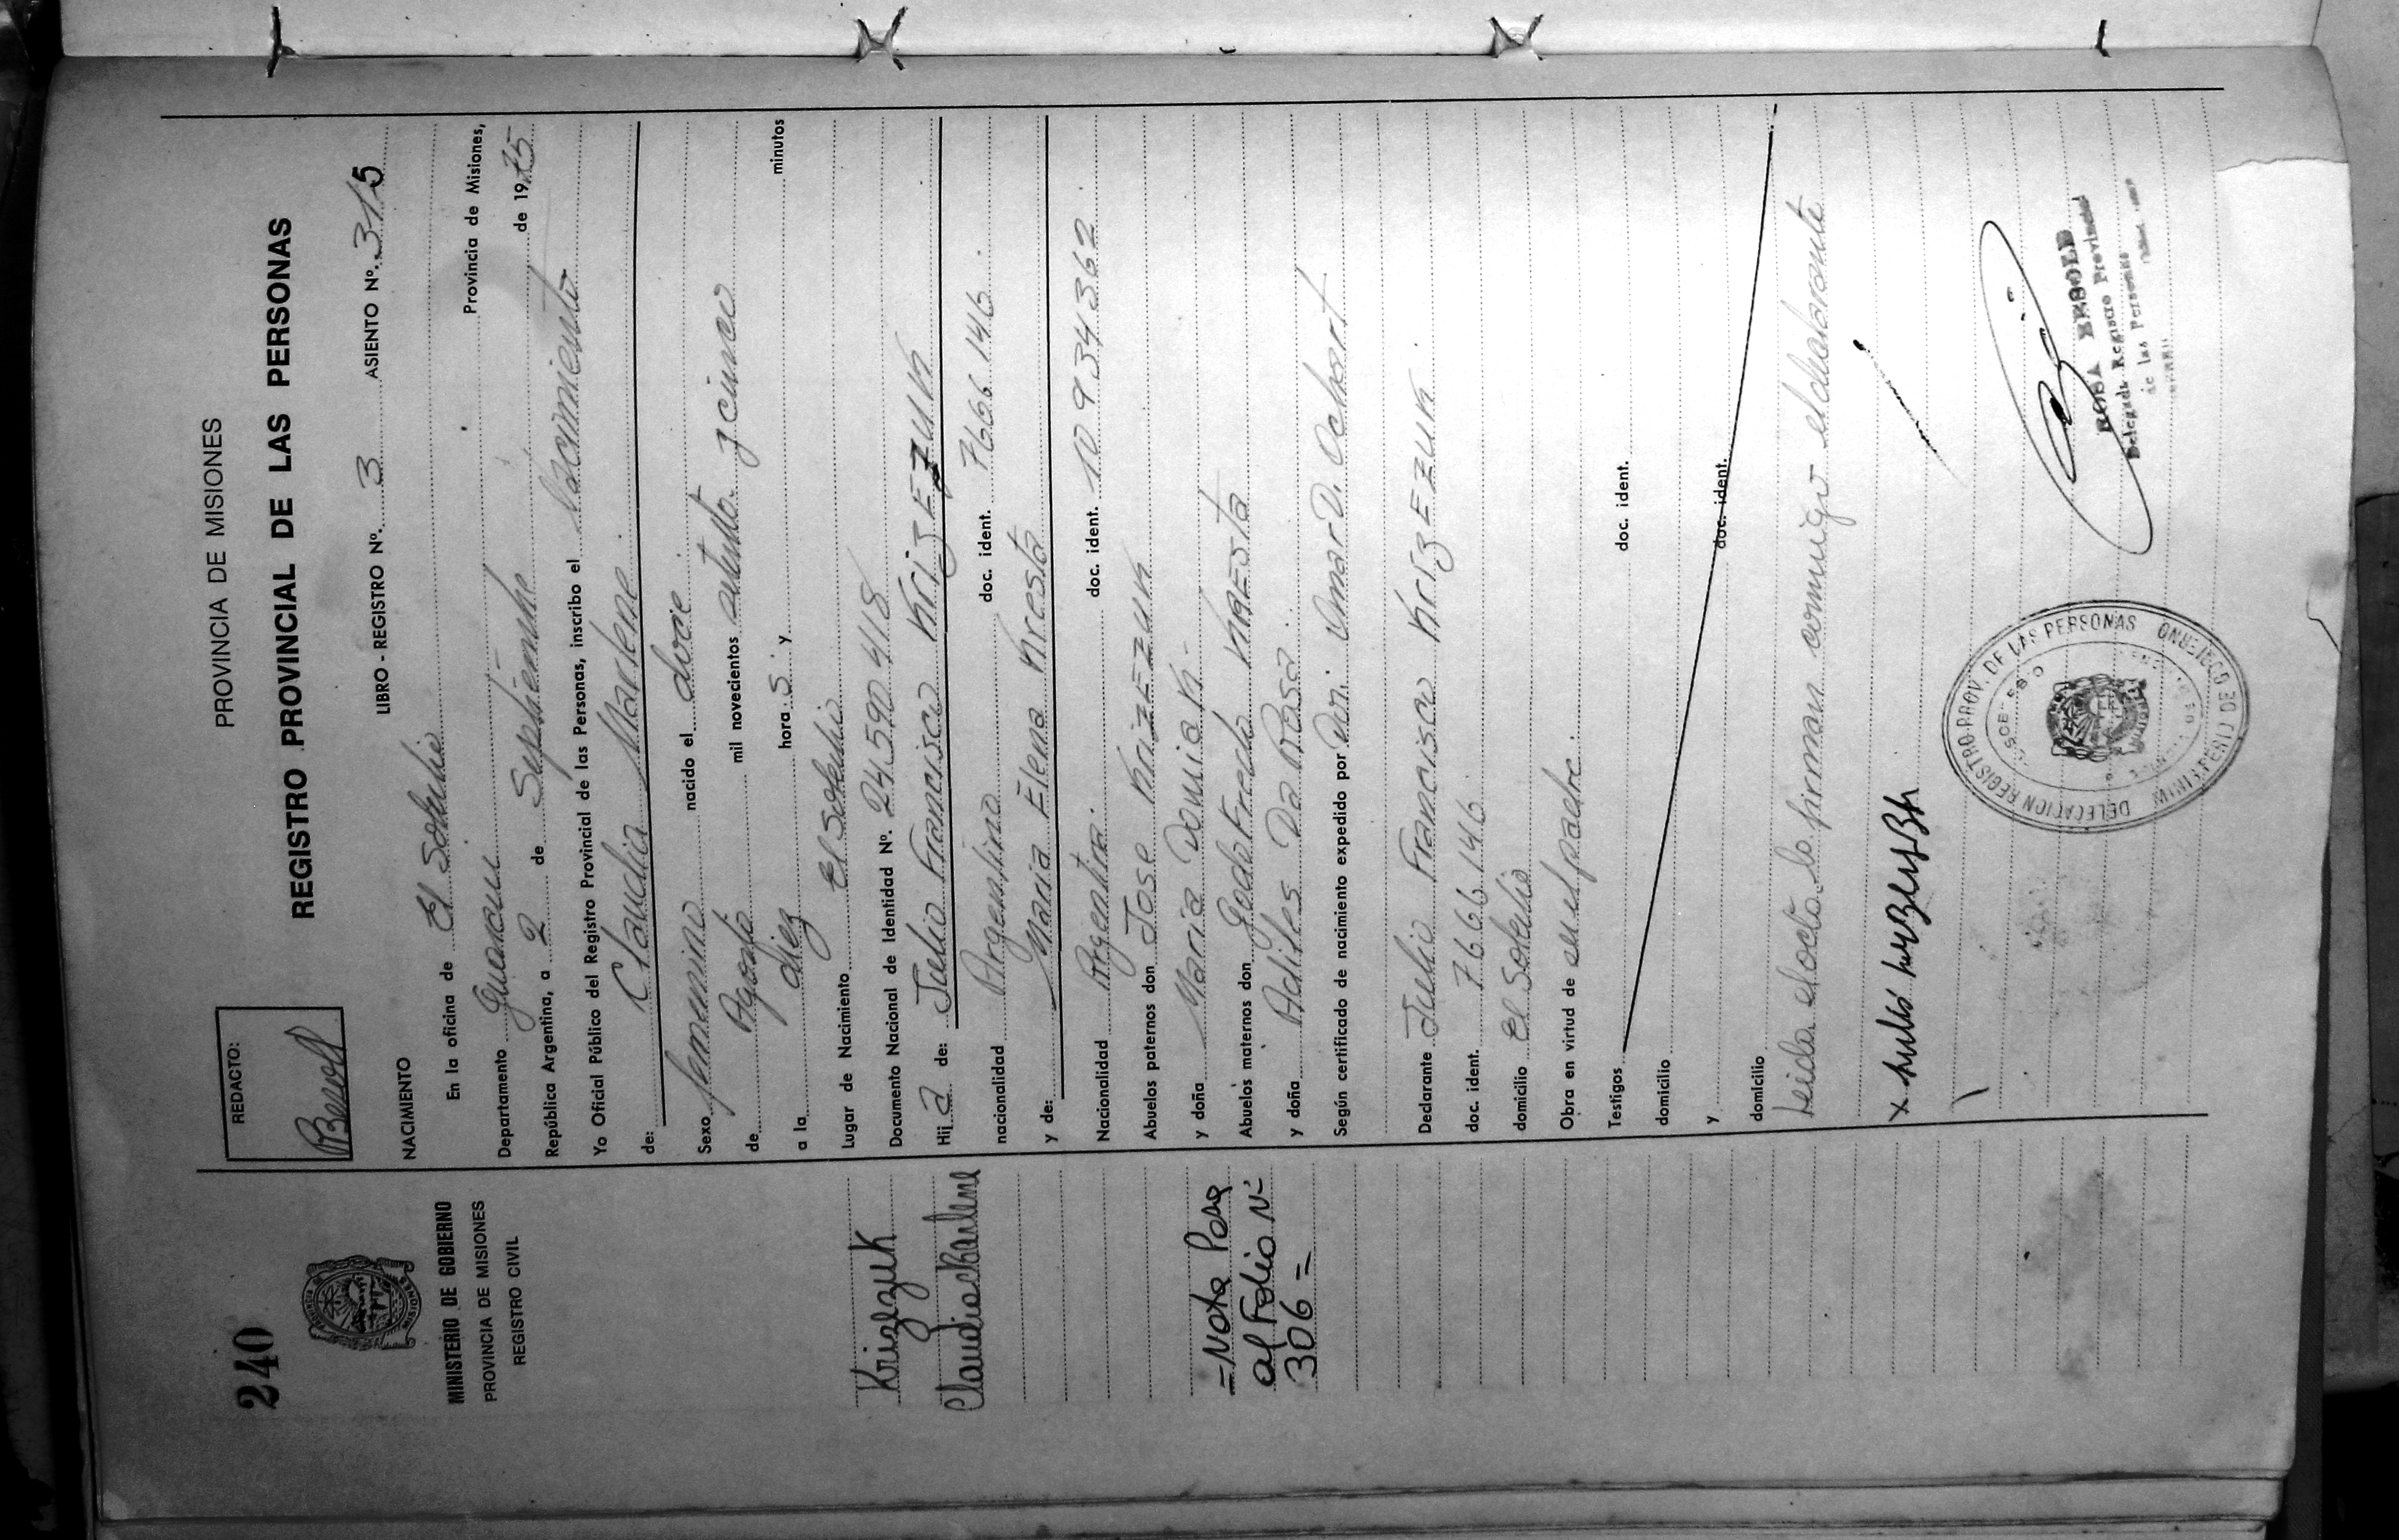 240
MINISTERIO DE GOBIERNO
PROVINCIA DE MISIONES
REGISTRO CIVIL
Krizezuk
Claudia Marlene
= Nota Pasa
al Folio Nº
306 =
REDACTO:
PROVINCIA DE MISIONES
REGISTRO PROVINCIAL DE LAS PERSONAS
LIBRO - REGISTRO Nº. 3 ASIENTO Nº. 315
NACIMIENTO
En la oficina de El Soberbio
Departamento Guarani Provincia de Misiones,
República Argentina, a 2 de Septiembre de 1975
Yo Oficial Público del Registro Provincial de las Personas, inscribo el Nacimiento
de: Claudia Marlene
Sexo femenino nacido el doce
de Agosto mil novecientos setenta y cinco
a la diez hora s y minutos
Lugar de Nacimiento El Soberbio
Documento Nacional de Identidad Nº. 24.590.418
Hij a de: Julio Francisco KrizEZUK
nacionalidad Argentino doc. ident. 7.666.146
y de: Maria Elena Kresta
Nacionalidad Argentina. doc. ident. 10.934.362
Abuelos paternos don Jose KrizEZUK
y doña Maria Domia K.
Abuelos maternos don GodoFredo KRESta
y doña Adiles Da Rosa
Según certificado de nacimiento expedido por Dr. Omar D. Ochart
Declarante Julio Francisco KrizEZUK
doc. ident. 7.666.146
domicilio El Soberbio
Obra en virtud de ser el padre.
Testigos doc. ident.
domicilio
y doc. ident.
domicilio
Leida el acta la firman conmigo el declarante
ROSA
Delegada Registro Provincial
de las Personas
DELEGACION REGISTRO PROV. DE LAS PERSONAS
MINISTERIO DE GOBIERNO